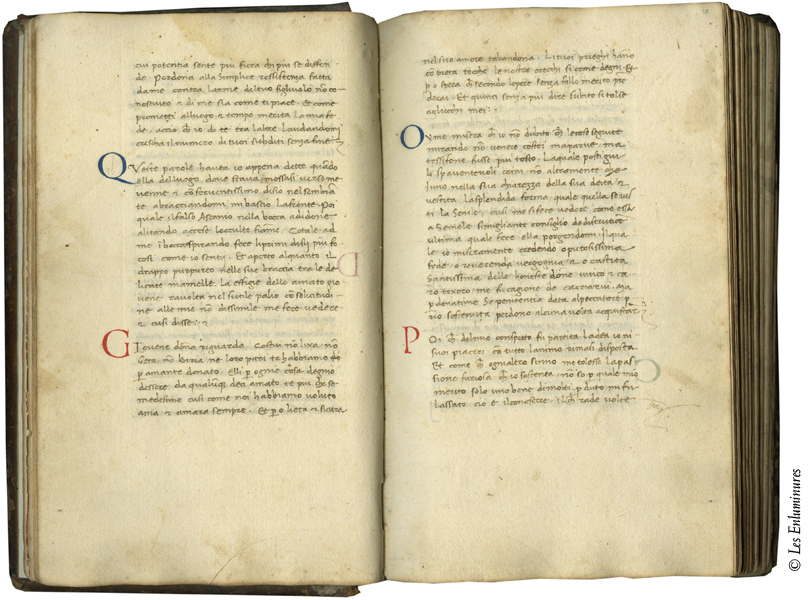 cui potentia sente piu fiera chi piu se diffen
de. Perdona alla simplice resistenza fatta
da me contra larme del tuo figliuolo nō co
nosciuto & di me sia come ti piace. Et come
promietti alluogo & tempo merita la mia fe
de. accio ch io di te tra laltre laudandomi
cresca il numero di tuoi subditi senza fine
Queste parole havea io appena dette quādo
ella del luogo dove stava mossasi verso me
venne & cō ferventissimo disio nel sembiā
te abracciandomi mi bascio la fronte. Poi
quale il falso Ascanio nella bocca a didone
alitando accese locculte fiāme. Cotale ad
me i bocca spirando fece li primi disii piu fo
cosi come io senti. Et aperto alquanto il
drappo purpureo nelle sue braccia tra le de
licate mamelle. La effigie dello amato gio
vene ravolta nel sutile palio cō solicitudi
ne alle mie nō dissimile me fece vedere
& cusi disse
Giovene dōna riguarda. Costui nō lixa. nō
Geta. nō birria me loro pari te habbiamo
p amante donato. Elli p ognie cosa degnio
dessere da qualūque dea amato te piu ch se
medesimo cusi come noi habbiamo voluto
ama & amara sempre. Et p o lieta & sicura
nel suo amore tabandona. Li tuoi prieghi hāno
cō pieta toche le nostre orechi si come degni Et
p o spera ch secondo lopere senza fallo merito pre
derai. Et quinci senza piu dire subito si tolse
agliocchi mei
Oyme misera ch io nō dubito ch le cose seguite
mirando nō venere costei ma parve. ma
tessifone fusse piu tosto. La quale posti giu
li spaventevoli crini nō altramente che
iuno nella sua charezza della sua deita &
vestita la splendida forma quale quella se ves
ti la senile, cusi me si fece vedere come essa
a Semele simigliante consiglio de destructione
ultima quale fece ella porgendomi. Il qua
le io miseramente credendo o piatosissima
fede. o reverenda vergognia & o castita
Santissima delle honeste dōne unico & ca
ro texoro me fu cagione de cacciarvi. Ma
p donatime Se penitentia data al peccatore p
nō sostenuta perdono alcuna volta acquistar
Poi ch del mio conspecto fu partita la dea io ni
suoi piaceri cō tutto lanimo rimasi disposta
Et come ch ognialtro senno me tolesse la pas
sione furiosa ch io sostenea. nō so p quale mio
merito solo uno bene de molti p duto mi fu
lassato cio e il conosere. il ch rade volte
© Les Enluminures